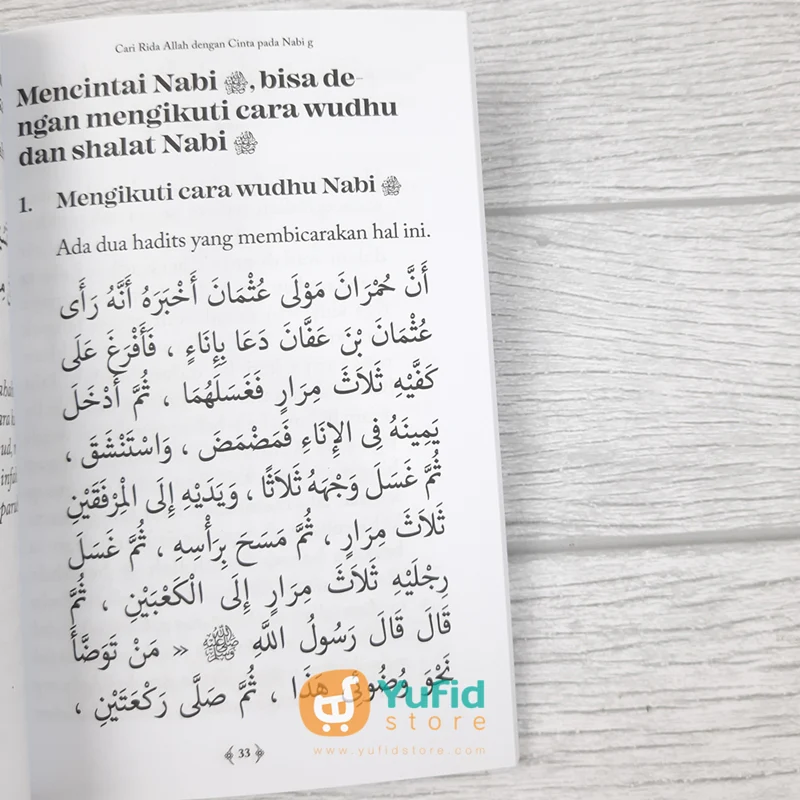 Cari Rida Allah dengan Cinta pada Nabi g
Mencintai Nabi ﷺ, bisa de-
ngan mengikuti cara wudhu
dan shalat Nabi ﷺ
1. Mengikuti cara wudhu Nabi ﷺ
Ada dua hadits yang membicarakan hal ini.
أَنَّ حُمْرَانَ مَوْلَى عُثْمَانَ أَخْبَرَهُ أَنَّهُ رَأَى
عُثْمَانَ بْنَ عَفَّانَ دَعَا بِإِنَاءٍ ، فَأَفْرَغَ عَلَى
كَفَّيْهِ ثَلاَثَ مِرَارٍ فَغَسَلَهُمَا ، ثُمَّ أَدْخَلَ
يَمِينَهُ فِى الإِنَاءِ فَمَضْمَضَ ، وَاسْتَنْشَقَ ،
ثُمَّ غَسَلَ وَجْهَهُ ثَلاَثًا ، وَيَدَيْهِ إِلَى الْمِرْفَقَيْنِ
ثَلاَثَ مِرَارٍ ، ثُمَّ مَسَحَ بِرَأْسِهِ ، ثُمَّ غَسَلَ
رِجْلَيْهِ ثَلاَثَ مِرَارٍ إِلَى الْكَعْبَيْنِ ، ثُمَّ
قَالَ قَالَ رَسُولُ اللَّهِ ﷺ « مَنْ تَوَضَّأَ
نَحْوَ وُضُوئِى هَذَا ، ثُمَّ صَلَّى رَكْعَتَيْنِ ،
33
Yufid
store
www.yufidstore.com